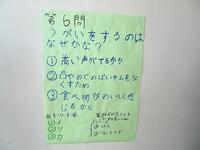 第6問
うがいをするのは
なぜかな?
① 高い声がでるから
② 口やのどのばいきんをな
くすため
③ 食べ物がおいしく感
じるから
①イ
②ツ
③カ